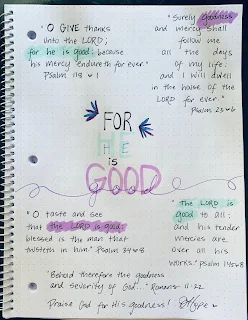 "O GIVE thanks
unto the LORD;
for he is good: because
his mercy endureth for ever."
Psalm 118:1
"Surely goodness
and mercy shall
follow me
all the days
of my life:
and I will dwell
in the house of the
LORD for ever."
Psalm 23:6
FOR
HE
is
GOOD
good
"O taste and see
that the LORD is good:
blessed is the man that
trusteth in him." Psalm 34:8
"The LORD is
good to all:
and his tender
mercies are
over all his
works." Psalm 145:9
"Behold therefore the goodness
and severity of God..." Romans 11:22
Praise God for His goodness!